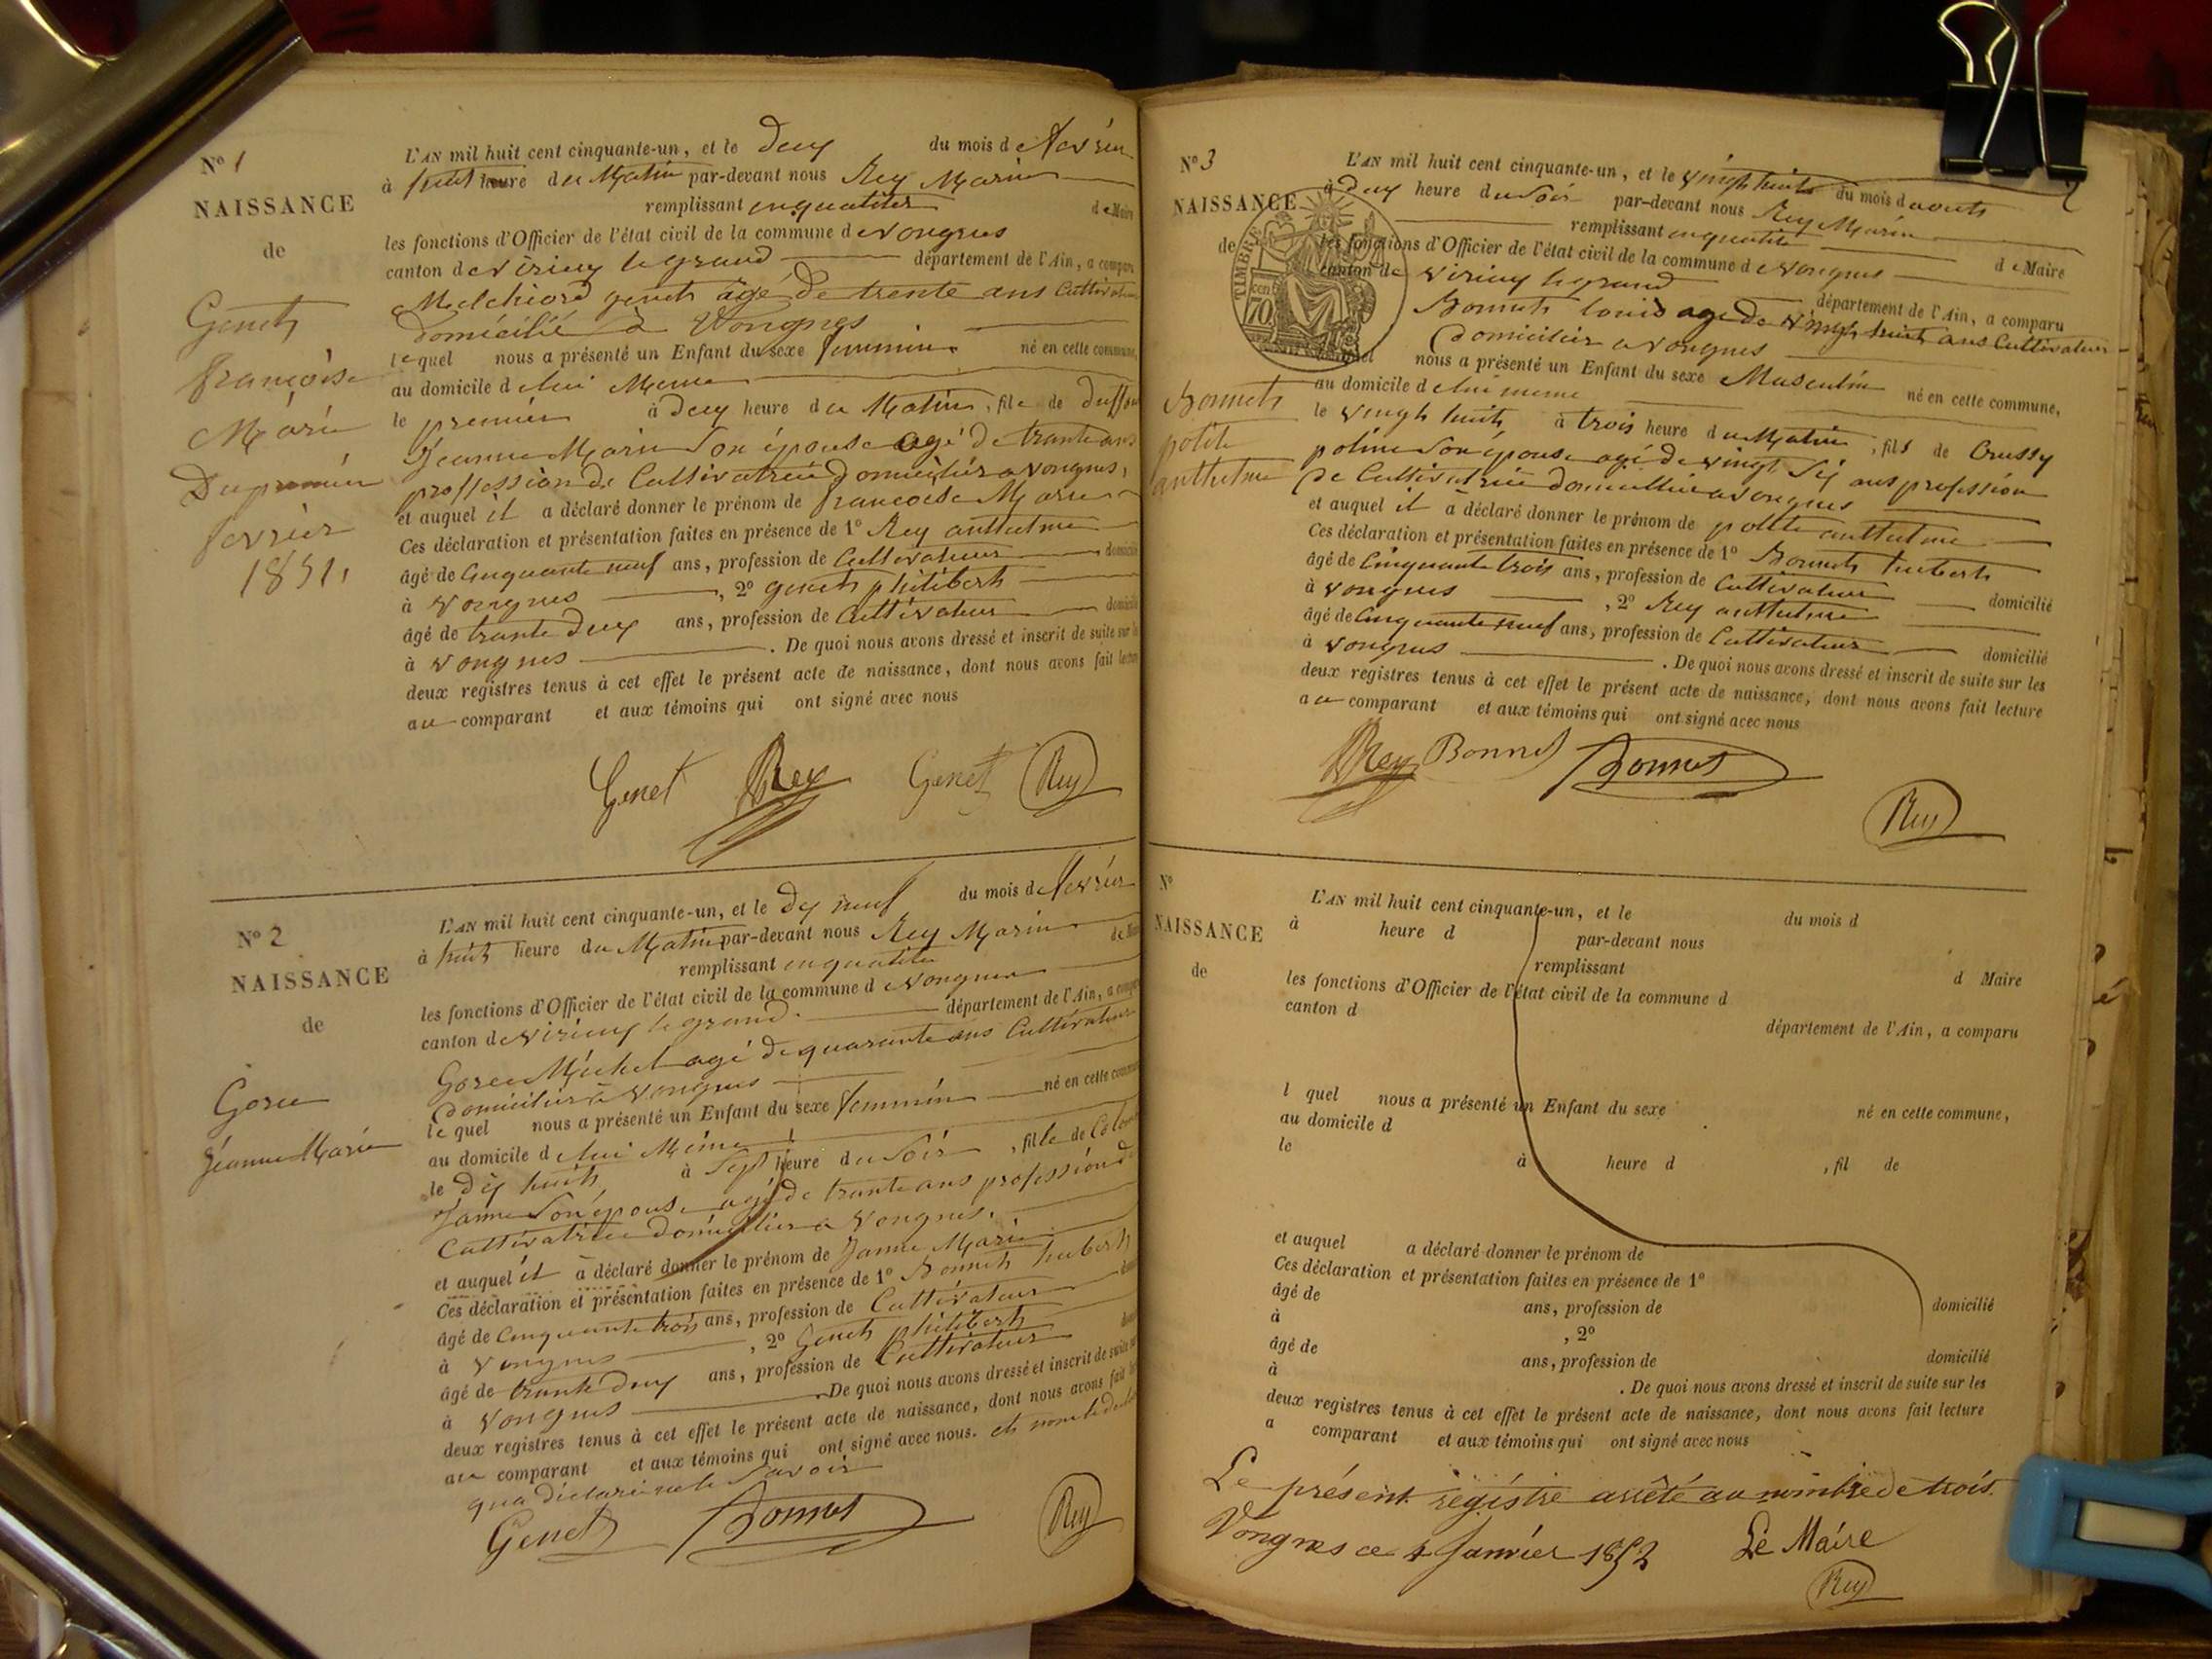 Nº 1
NAISSANCE
de
Genet
françoise
Marie
Du premier
fevrier
1851.
L'AN mil huit cent cinquante-un, et le deux du mois de fevrier
à huit heure du Matin par-devant nous Rey Marin
remplissant en qualiter de Maire
les fonctions d'Officier de l'état civil de la commune d Vongnes
canton de virieu le grand département de l'Ain, a comparu
Melchiord genet âgé de trente ans Cultivateur
domicilié à Vongnes
lequel nous a présenté un Enfant du sexe feminin né en cette commune,
au domicile de lui Meme
le premier à deux heure du Matin, fille de
Jeanne Marie Son épouse agé de trante ans
proffession de Cultivatrice domicilier a vongnes,
et auquel il a déclaré donner le prénom de francoise Marie
Ces déclaration et présentation faites en présence de 1º Rey anthelme
âgé de Cinquante neuf ans, profession de Cultivateur domicilié
à vongnes, 2º genet philibert
âgé de trante deux ans, profession de Cultivateur domicilié
à vongnes. De quoi nous avons dressé et inscrit de suite sur les
deux registres tenus à cet effet le présent acte de naissance, dont nous avons fait lecture
au comparant et aux témoins qui ont signé avec nous
Genet Rey Genet Rey
Nº 2
NAISSANCE
de
Gorce
Jeanne Marie
L'AN mil huit cent cinquante-un, et le dix neuf du mois de fevrier
à huit heure du Matin par-devant nous Rey Marin
remplissant en qualite de Maire
les fonctions d'Officier de l'état civil de la commune d Vongnes
canton de virieu le grand. département de l'Ain, a comparu
Gorce Michel agé de quarante ans Cultivateur
domicilier à Vongnes
lequel nous a présenté un Enfant du sexe feminin né en cette commune
au domicile de lui Meme
le dix huit à Sept heure du Soir, fille de
Janne Son épouse agé de trante ans profession de
Cultivatrice domicilier a Vongnes.
et auquel il a déclaré donner le prénom de Janne Marie
Ces déclaration et présentation faites en présence de 1º Bonnet hubert
âgé de Cinquante trois ans, profession de Cultivateur
à vongnes, 2º Genet philibert
âgé de trante deux ans, profession de Cultivateur
à Vongnes De quoi nous avons dressé et inscrit de suite sur
deux registres tenus à cet effet le présent acte de naissance, dont nous avons fait
au comparant et aux témoins qui ont signé avec nous. et non le
qua déclaré ne le Savoir
Genet Bonnet Rey
Nº 3
NAISSANCE
de
Bonnet
polite
anthelme
TIMBRE
70
L'AN mil huit cent cinquante-un, et le vingt huit du mois d aout
à deux heure du Soir par-devant nous Rey Marin
remplissant en qualite de Maire
les fonctions d'Officier de l'état civil de la commune d Vongnes
canton de virieu le grand département de l'Ain, a comparu
Bonnet louis age de vingt huit ans Cultivateur
domicilier a vongnes
lequel nous a présenté un Enfant du sexe Masculin né en cette commune,
au domicile de lui meme
le vingt huit à trois heure du Matin, fils de Crussy
poline Son épouse agé de vingt Six ans profession
de Cultivatrice domicillier a vongnes
et auquel il a déclaré donner le prénom de polite anthelme
Ces déclaration et présentation faites en présence de 1º Bonnet hubert
âgé de Cinquante trois ans, profession de Cultivateur domicilié
à vongnes, 2º Rey anthelme
âgé de Cinquante neuf ans, profession de Cultivateur domicilié
à vongnes. De quoi nous avons dressé et inscrit de suite sur les
deux registres tenus à cet effet le présent acte de naissance, dont nous avons fait lecture
au comparant et aux témoins qui ont signé avec nous
Rey Bonnet Bonnet
Rey
Nº
NAISSANCE
de
L'AN mil huit cent cinquante-un, et le du mois d
à heure d par-devant nous
remplissant d Maire
les fonctions d'Officier de l'état civil de la commune d
canton d département de l'Ain, a comparu
l quel nous a présenté un Enfant du sexe né en cette commune,
au domicile d
le à heure d , fil de
et auquel a déclaré donner le prénom de
Ces déclaration et présentation faites en présence de 1º
âgé de ans, profession de domicilié
à , 2º
âgé de ans, profession de domicilié
à . De quoi nous avons dressé et inscrit de suite sur les
deux registres tenus à cet effet le présent acte de naissance, dont nous avons fait lecture
a comparant et aux témoins qui ont signé avec nous
Le présent régistre arrêté au nombre de trois.
Vongnes ce 1 Janvier 1852 Le Maire
Rey